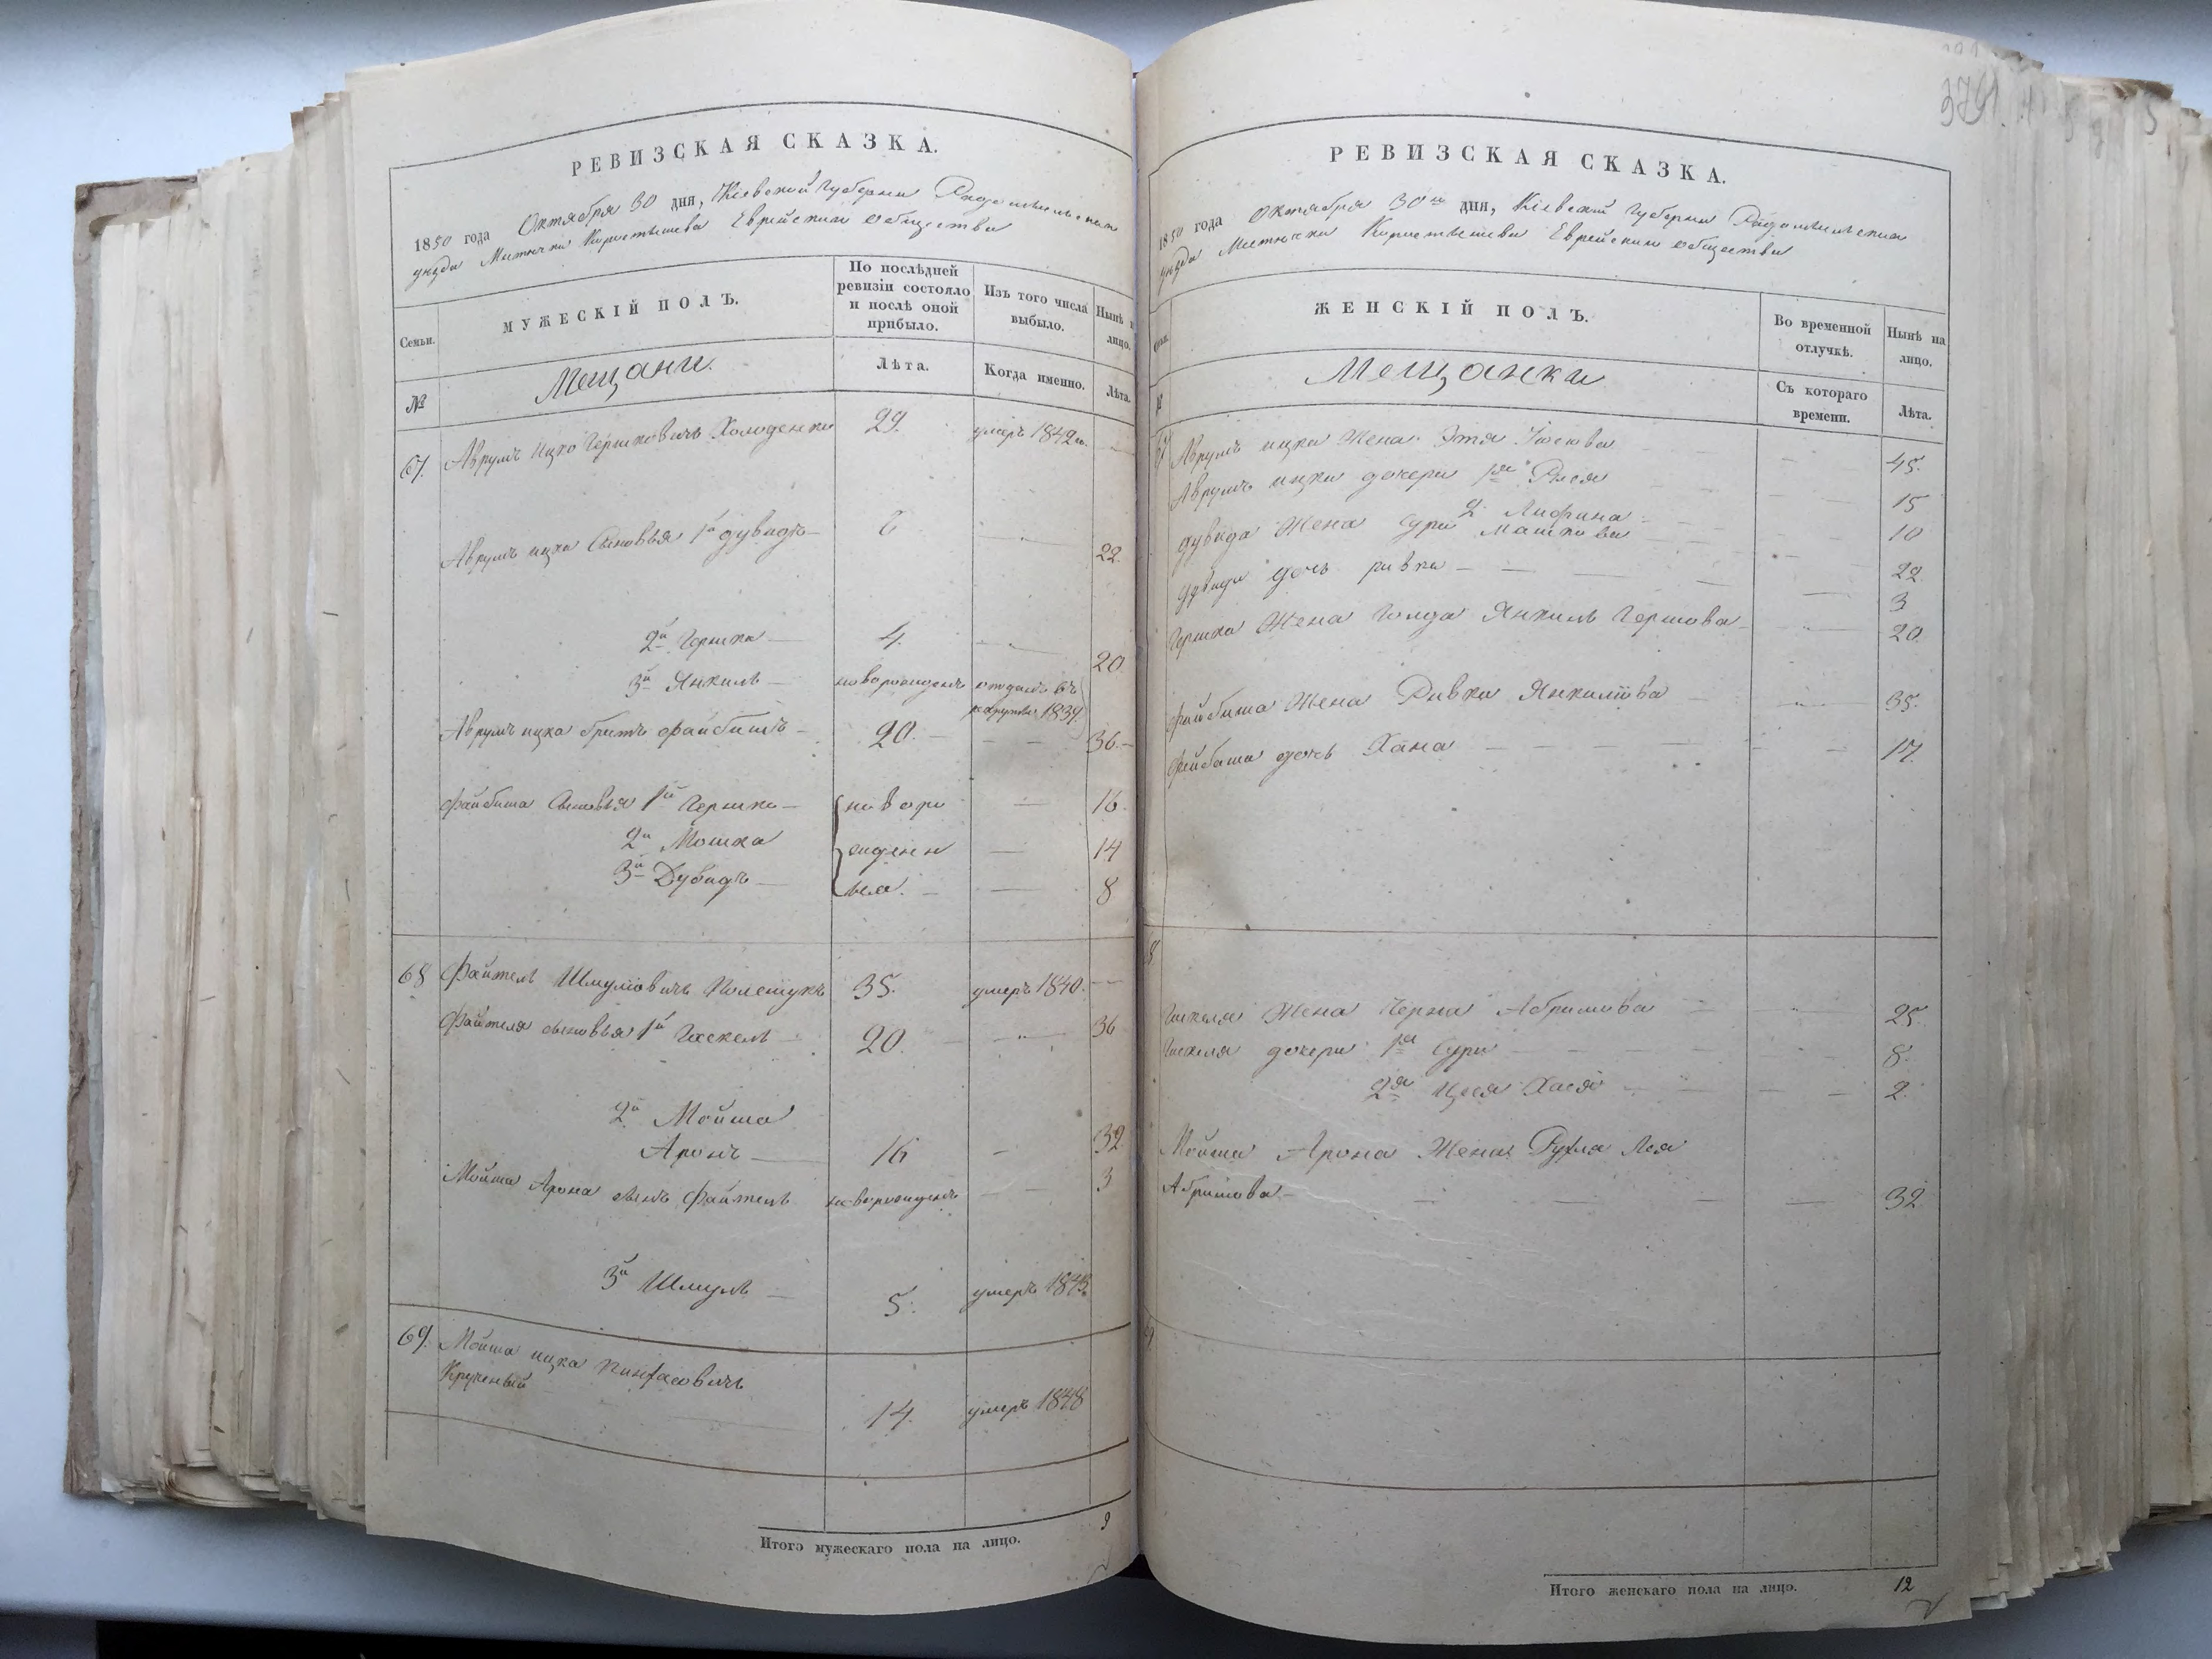 РЕВИЗСКАЯ СКАЗКА.
1850 года Октября 30 дня, Кіевской Губерніи Радомысльскаго
уезда Мѣстечка Коростышева Еврейскаго общества
Семьи. МУЖЕСКІЙ ПОЛЪ. По послѣдней ревизіи состояло и послѣ оной прибыло. Изъ того числа выбыло. Нынѣ на лицо.
№ Мещани. Лѣта. Когда именно. Лѣта.
67. Аврумъ Ицко Гершковичъ Холоденко 29. умеръ 1842 —
Аврумъ ицка Сыновья 1й дувидъ — 22.
2й Гершка — 4. 20
3й Янкиль — новорожденъ отданъ въ
рекруты 1839
Аврумъ ицка братъ файбишъ — 20. — 36. —
Файбиша Сыновья 1й Гершко — новоро — 16.
2й Мошка жденн — 14
3й Дувидъ — ые. — 8
68 Файтель Шмулiовичъ Полещукъ 35. умеръ 1840. —
Файтеля сыновья 1й Хаскель 20. 36
2й Мойша
Аронъ — 16 — 32
Мойша Арона сынъ Файтель новорожденъ — 3
3й Шмуль — 5. умеръ 1843
69. Мойша ицка Пинхасовичъ
Крученый 14. умеръ 1848
Итого мужескаго пола на лицо. 9
РЕВИЗСКАЯ СКАЗКА.
1850 года Октября 30го дня, Кіевской Губерніи Радомысльскаго
уезда Мѣстечка Коростышева Еврейскаго общества
ЖЕНСКІЙ ПОЛЪ. Во временной отлучкѣ. Нынѣ на лицо.
Мещанки Съ котораго времени. Лѣта.
Аврумъ ицка Жена Этя — 45.
Аврумъ ицки дочери 1я Рися — 15
2. — 10
дувида Жена Сура Машкова — 22.
дувида дочь ривка — 3
Гершка Жена Голда Янкиль Гершова — 20.
Файбиша Жена Ривка Янкилiова — 35.
Файбиша дочь Хана — 17.
Хаскеля Жена Черна Абрамова — 25.
Хаскеля дочери 1я Сура — 8.
2я Хася — 2.
Мойша Арона Жена Рухля Лея
Абрамова — 32
Итого женскаго пола на лицо. 12